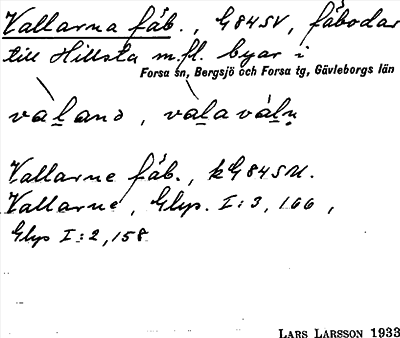 Vallarna fäb., G84SV, fäbodar
till Hillsta m.fl. byar i
Forsa sn, Bergsjö och Forsa tg, Gävleborgs län
valand, valaváln
Vallarne fäb., kG84SU.
Vallarne, Glyp. I:3, 166,
Glyp I:2, 158
LARS LARSSON 1933